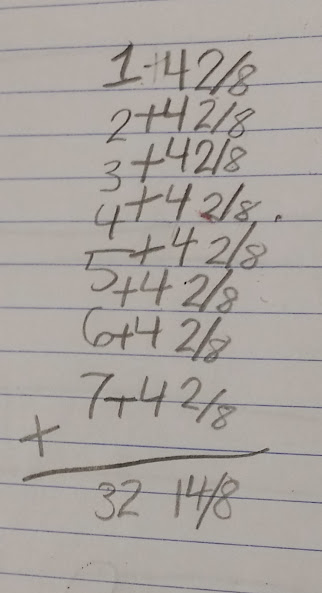 1+4 2/8
2+4 2/8
3+4 2/8
4+4 2/8.
5+4 2/8
6+4 2/8
7+4 2/8
+
32 14/8